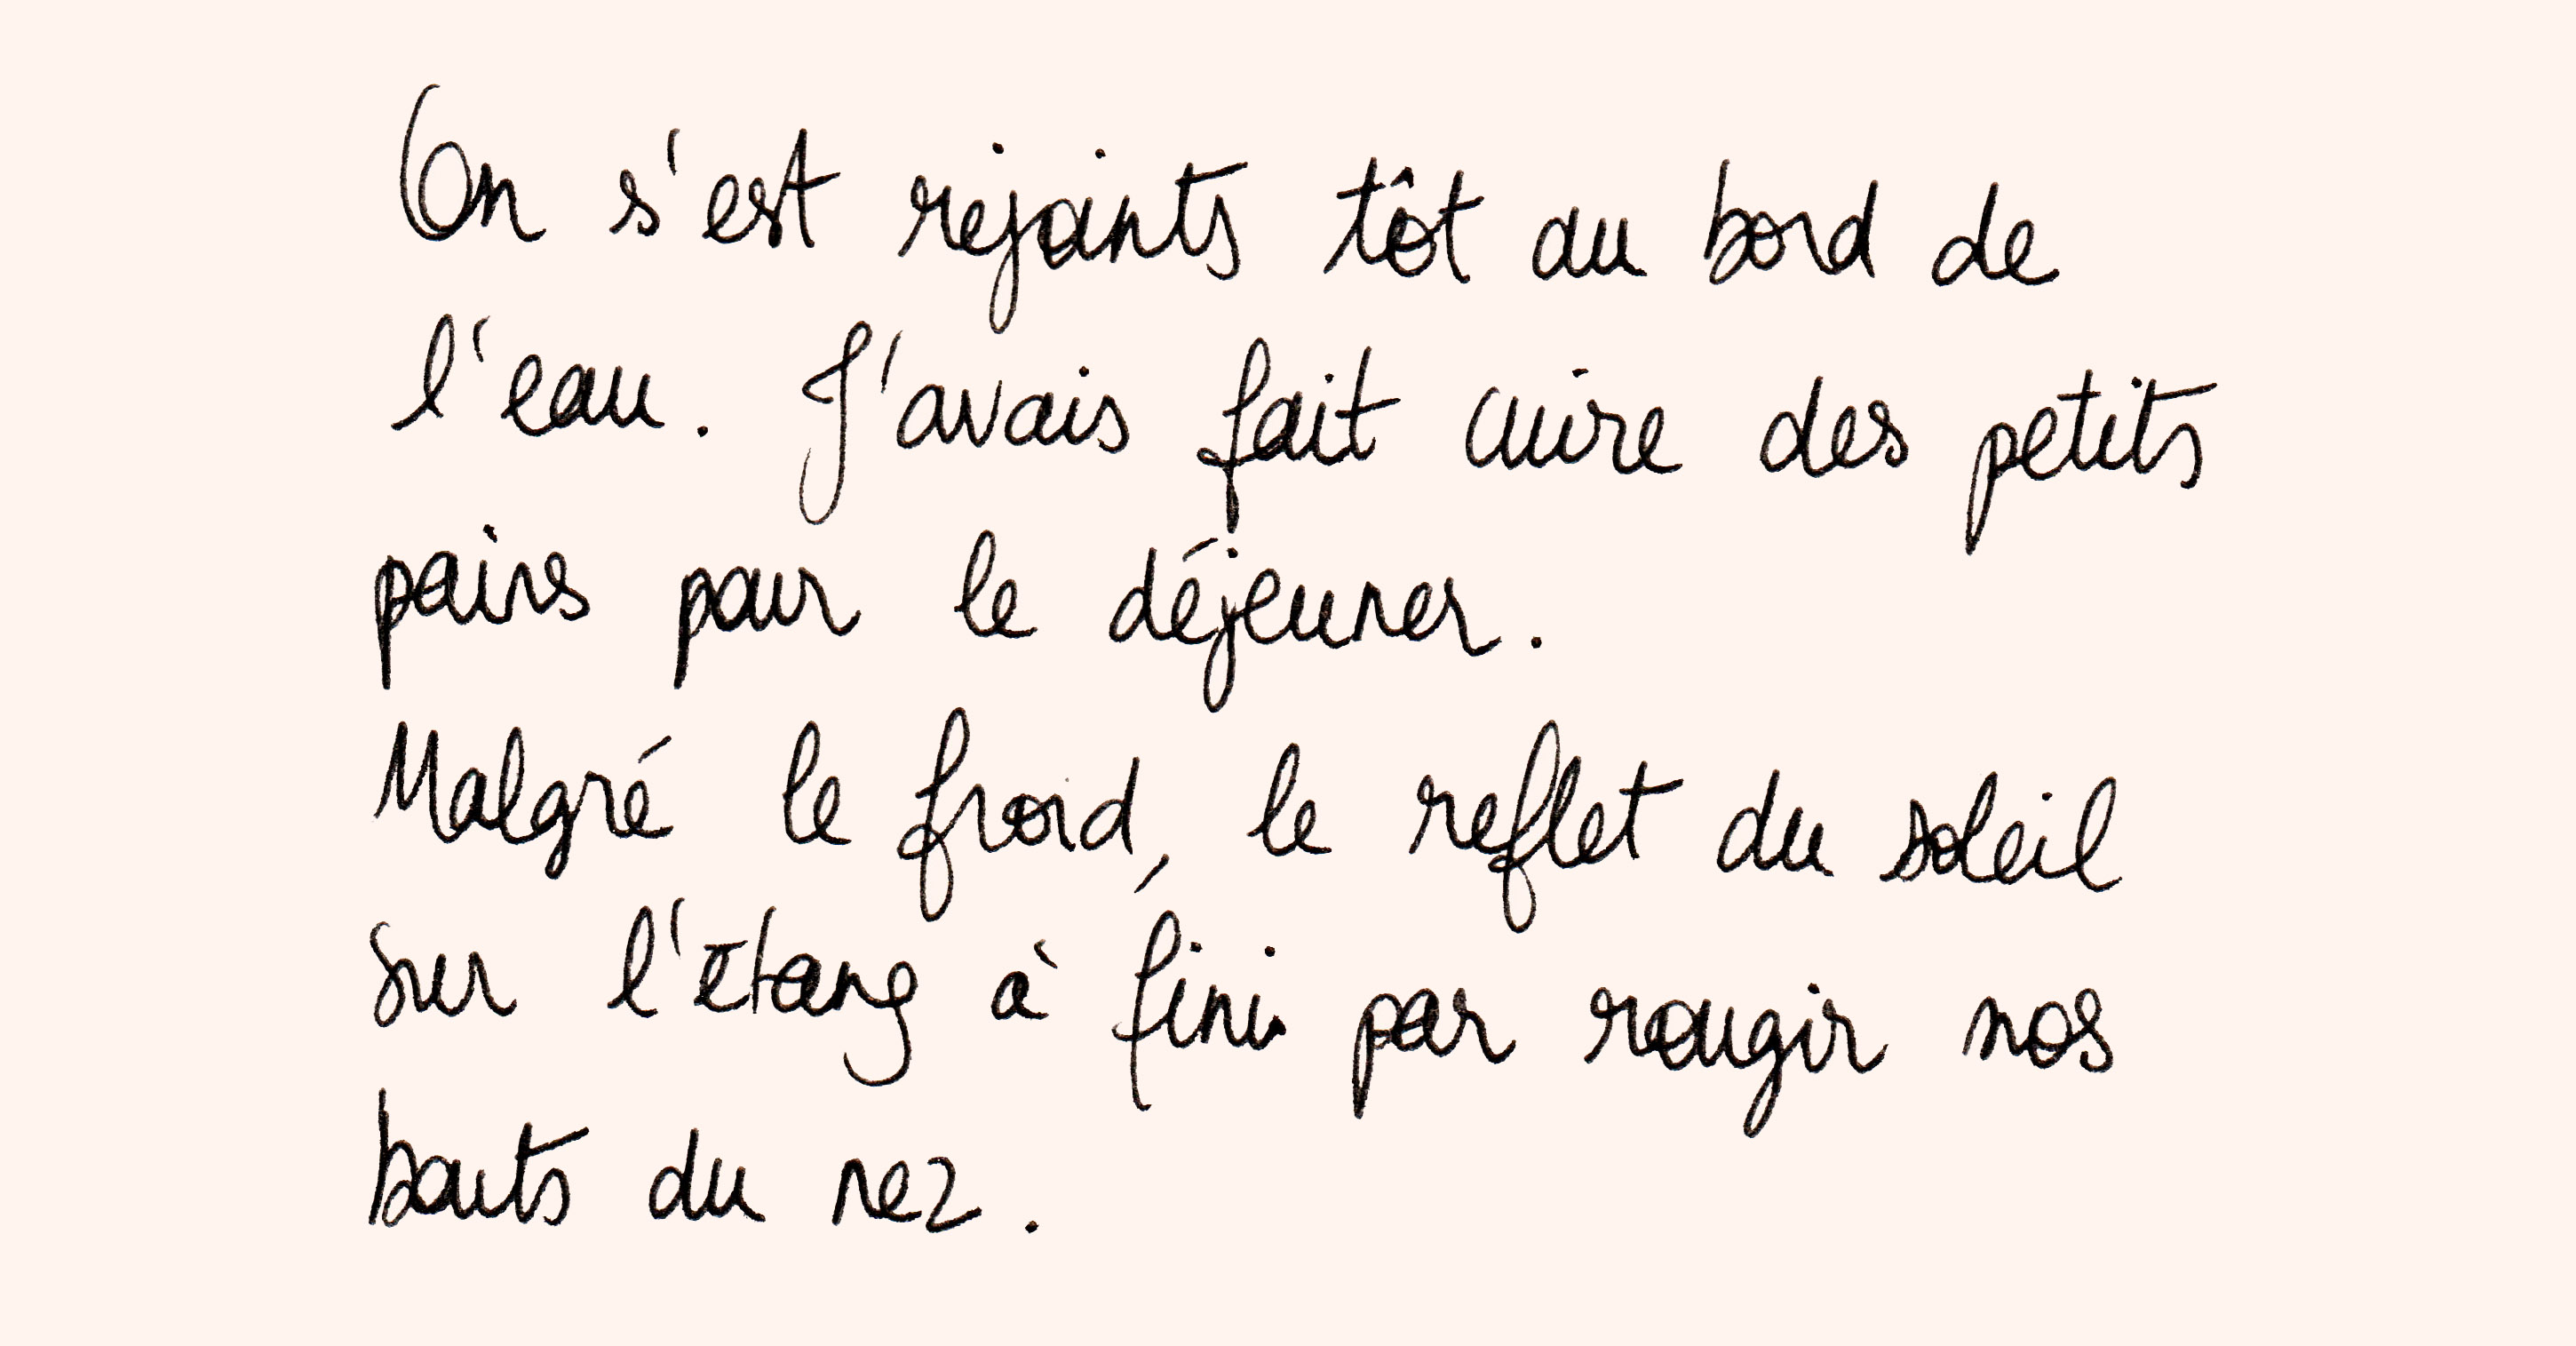 On s'est rejoints tôt au bord de
l'eau. J'avais fait cuire des petits
pains pour le déjeuner.
Malgré le froid, le reflet du soleil
sur l'étang à fini par rougir nos
bouts du nez.